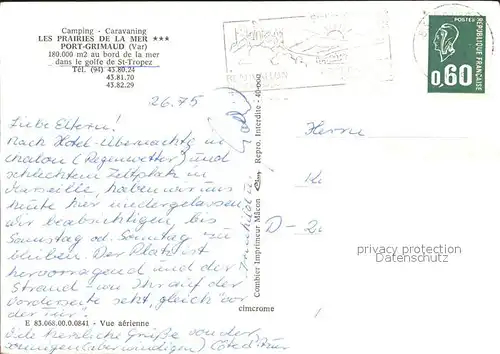 Camping - Caravaning
LES PRAIRIES DE LA MER ***
PORT-GRIMAUD (Var)
180.000 m2 au bord de la mer
dans le golfe de St-Tropez
Tél. (94) 43.80.24
43.81.70
43.82.29
POSTES
REPUBLIQUE FRANÇAISE
0,60
26.75
Liebe Eltern!
Nach Hotel-Übernachtg in
Chalon (Regenwetter) und
schlechtem Zeltplatz in
Marseille, haben wir uns
heute hier niedergelassen,
wir beabsichtigen bis
Samstag od. Sonntag zu
bleiben. Der Platz ist
hervorragend und der
Strand - wie Ihr auf der
Vorderseite seht, gleich "vor
der Tür".
Viele herzliche Grüße von der
sonnigen Côte d'Azur
E 83.068.00.0.0841 - Vue aérienne
cimcrome
Combier Imprimeur Mâcon Repro. Interdite - 40-000
Herrn
D-2
privacy protection
Datenschutz